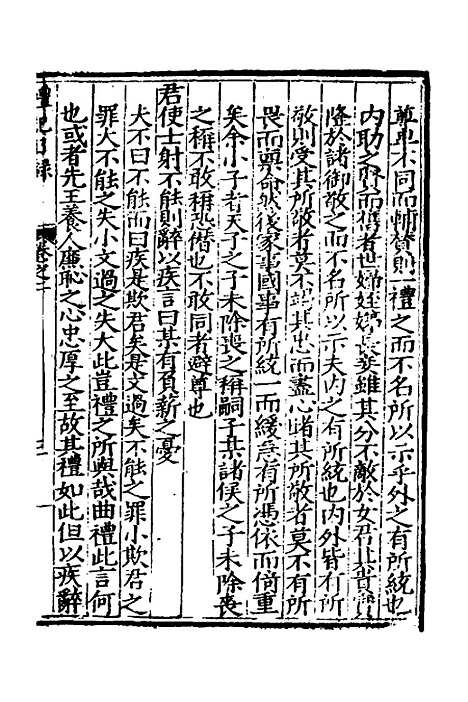 尊卑不同而輔賛則一禮之而不名所以示乎外之有所統也
内助之賢而舊者世婦姪娣長妾雖其分不敵於女君其貴
隆於諸御敬之而不名所以示夫内之有所統也内外皆有所
敬則受其所敬者莫不竭其忠而盡心睹其所敬者莫不有所
畏而禀命然後家事國事有所統一而緩急有所憑依而倍重
矣余小子者天子之子未除喪之稱嗣子某諸侯之子未除喪
之稱不敢稱恐僭也不敢同者避尊也
君使士射不能則辭以疾言曰某有負薪之憂
夫不曰不能而曰疾是欺君矣是文過矣不能之罪小欺君之
罪大不能之失小文過之失大此豈禮之所與哉曲禮此言何
也或者先王養人廉恥之心忠厚之至故其禮如此但以疾辭
禮記日録
卷之一